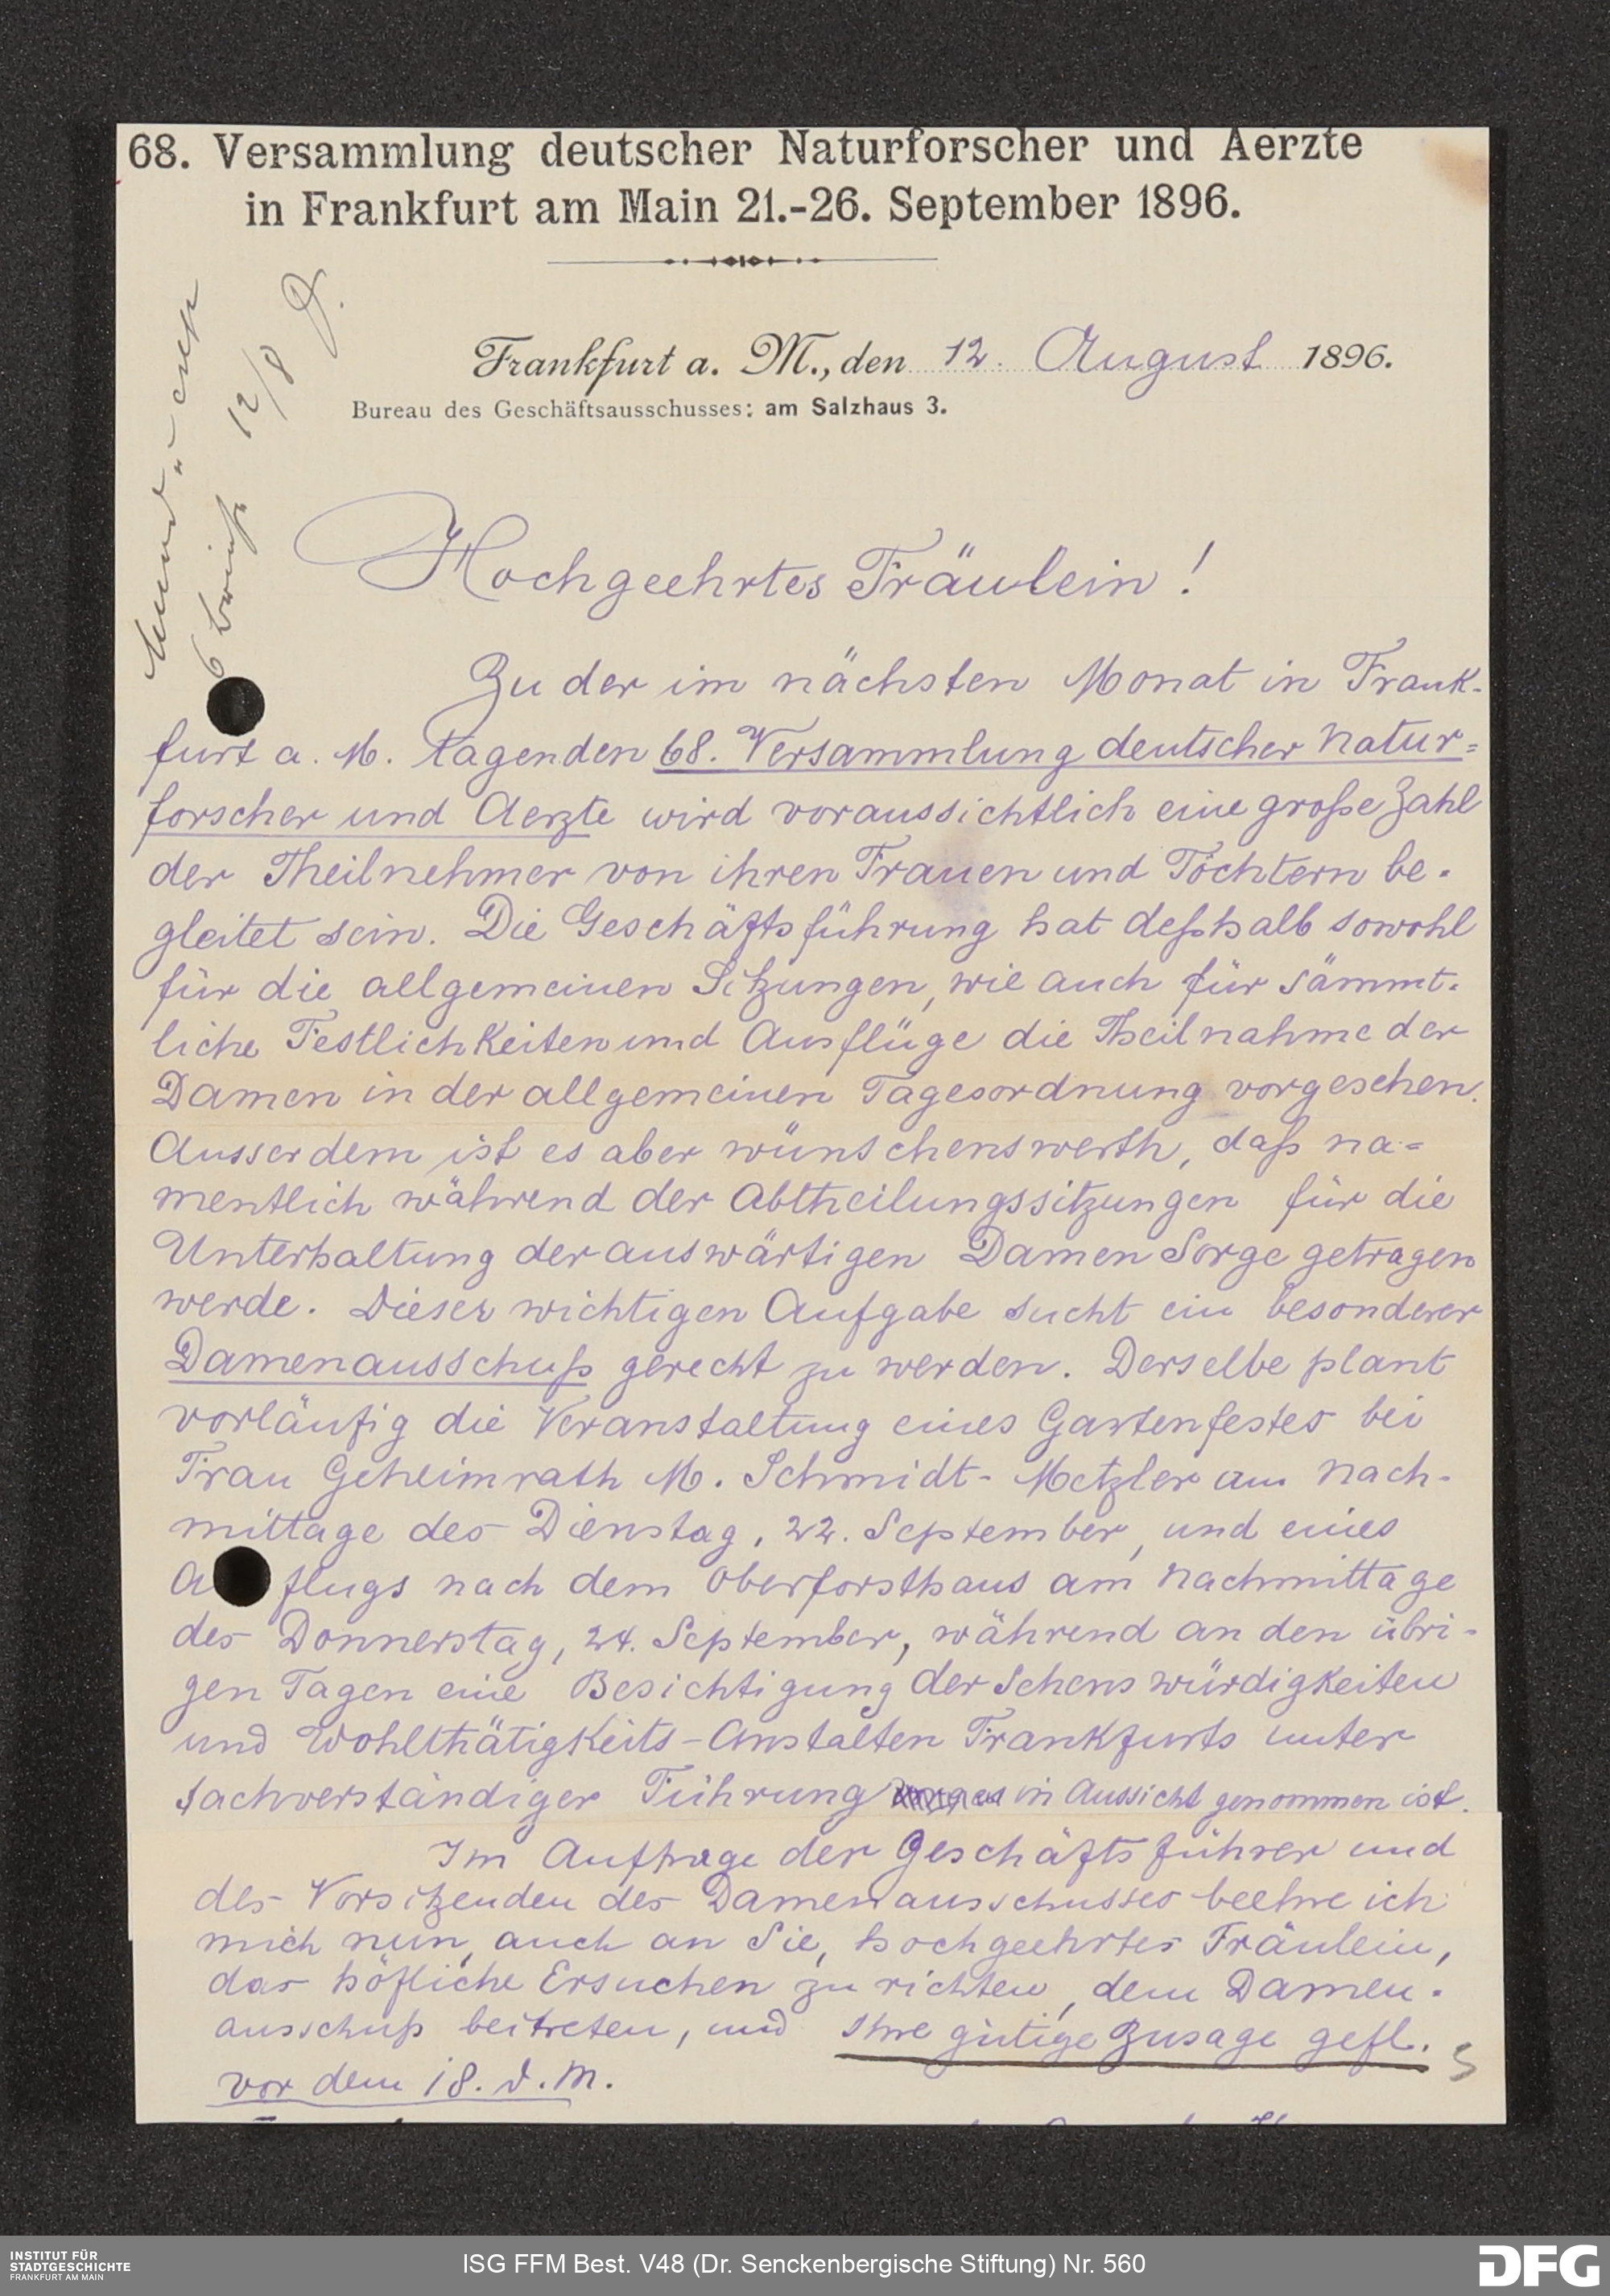 68. Versammlung deutscher Naturforscher und Aerzte
in Frankfurt am Main 21.-26. September 1896.
Frankfurt a. M., den 12. August 1896.
Bureau des Geschäftsausschusses: am Salzhaus 3.
12/8
Hochgeehrtes Fräulein!
Zu der im nächsten Monat in Frank-
furt a. M. tagenden 68. Versammlung deutscher Natur=
forscher und Aerzte wird voraussichtlich eine große Zahl
der Theilnehmer von ihren Frauen und Töchtern be-
gleitet sein. Die Geschäftsführung hat deßhalb sowohl
für die allgemeinen Sitzungen, wie auch für sämmt-
liche Festlichkeiten und Ausflüge die Theilnahme der
Damen in der allgemeinen Tagesordnung vorgesehen.
Ausserdem ist es aber wünschenswerth, daß na=
mentlich während der Abtheilungssitzungen für die
Unterhaltung der auswärtigen Damen Sorge getragen
werde. Dieser wichtigen Aufgabe sucht ein besonderer
Damenausschuß gerecht zu werden. Derselbe plant
vorläufig die Veranstaltung eines Gartenfestes bei
Frau Geheimrath M. Schmidt-Metzler am Nach-
mittage des Dienstag, 22. September, und eines
A flugs nach dem Oberforsthaus am Nachmittage
des Donnerstag, 24. September, während an den übri-
gen Tagen eine Besichtigung der Sehenswürdigkeiten
und Wohlthätigkeits-Anstalten Frankfurts unter
sachverständiger Führung in Aussicht genommen ist.
Im Auftrage der Geschäftsführer und
des Vorsitzenden des Damenausschusses beehre ich
mich nun, auch an Sie, hochgeehrtes Fräulein,
das höfliche Ersuchen zu richten, dem Damen-
ausschuß beitreten, und Ihre gütige Zusage gefl.
vor dem 18. d. M.
INSTITUT FÜR
STADTGESCHICHTE
FRANKFURT AM MAIN
ISG FFM Best. V48 (Dr. Senckenbergische Stiftung) Nr. 560
DFG